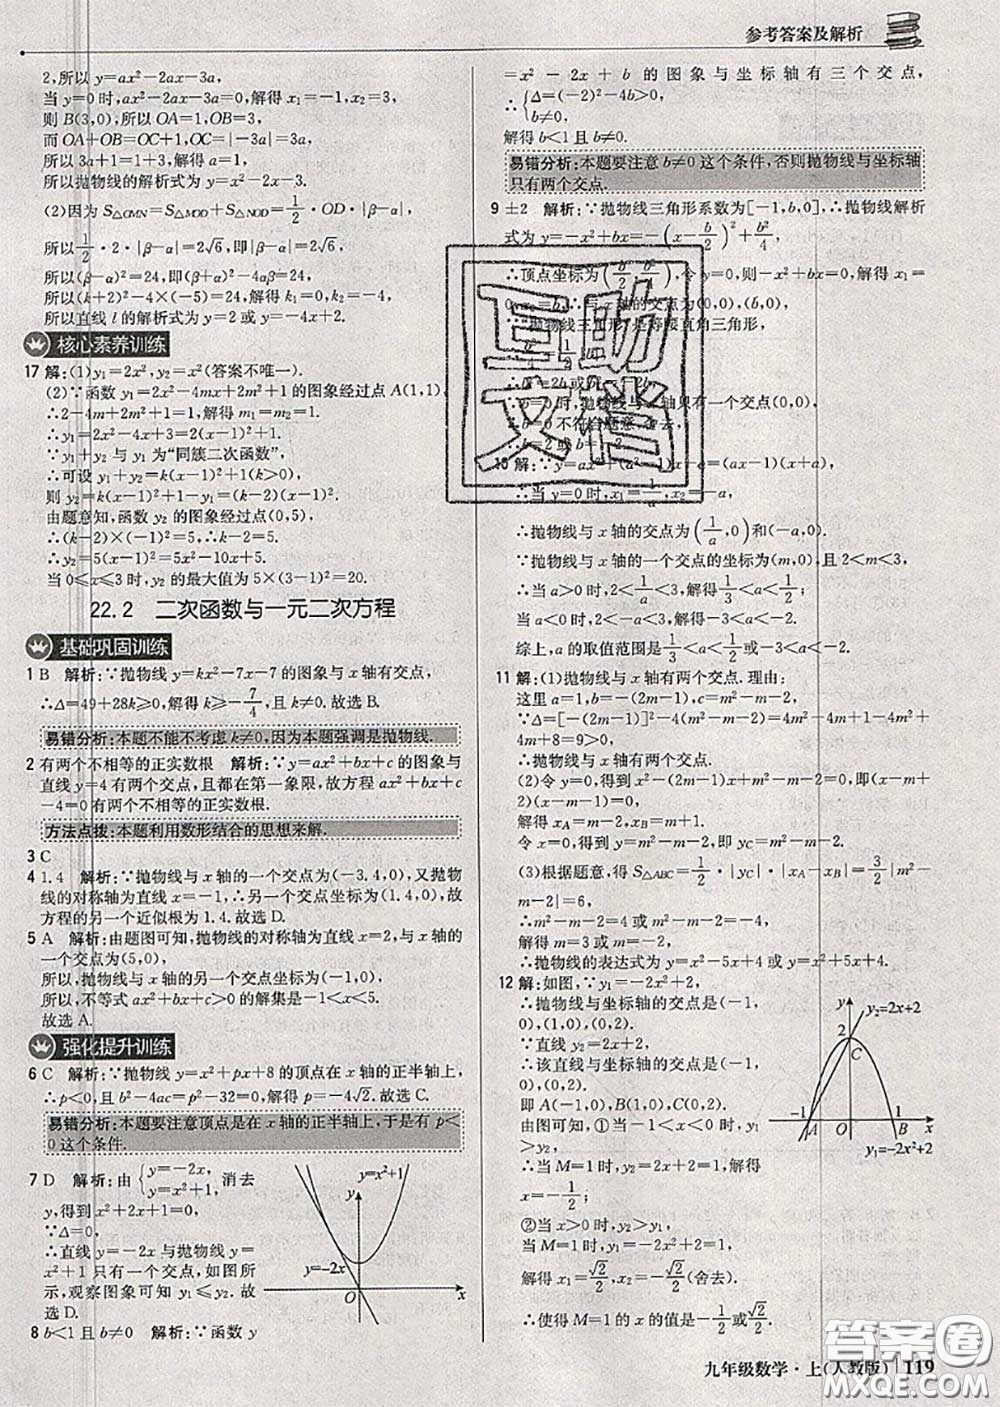 参考答案及解析
2,所以 y=ax²-2ax-3a,
当 y=0时,ax²-2ax-3a=0,解得 x₁=-1,x₂=3,
则 B(3,0),所以 OA=1,OB=3,
而 OA+OB=OC+1,OC=|-3a|=3a,
所以 3a+1=1+3,解得 a=1,
所以抛物线的解析式为 y=x²-2x-3.
(2)因为 S△OMN=S△MOD+S△NOD=1/2·OD·|β-α|,
所以 1/2·2·|β-α|=2√6,即|β-α|=2√6,
所以(β-α)²=24,即(β+α)²-4αβ=24,
所以(k+2)²-4×(-5)=24,解得 k₁=0,k₂=-4,
所以直线 l 的解析式为 y=2 或 y=-4x+2.
核心素养训练
17 解:(1)y₁=2x²,y₂=x²(答案不唯一).
(2)∵函数 y₁=2x²-4mx+2m²+1 的图象经过点 A(1,1),
∴2-4m+2m²+1=1,解得 m₁=m₂=1.
∴y₁=2x²-4x+3=2(x-1)²+1.
∵y₁+y₂ 与 y₁ 为“同簇二次函数”,
∴可设 y₁+y₂=k(x-1)²+1(k>0),
则 y₂=k(x-1)²+1-y₁=(k-2)(x-1)².
由题意知,函数 y₂ 的图象经过点(0,5),
∴(k-2)×(-1)²=5.∴k-2=5.
∴y₂=5(x-1)²=5x²-10x+5.
当 0≤x≤3 时,y₂ 的最大值为 5×(3-1)²=20.
22.2 二次函数与一元二次方程
基础巩固训练
1 B 解析:∵抛物线 y=kx²-7x-7 的图象与 x 轴有交点,
∴Δ=49+28k≥0,解得 k≥-7/4,且 k≠0.故选 B.
易错分析:本题不能不考虑 k≠0,因为本题强调是抛物线.
2 有两个不相等的正实数根 解析:∵y=ax²+bx+c 的图象与
直线 y=4 有两个交点,且都在第一象限,故方程 ax²+bx+c
-4=0 有两个不相等的正实数根.
方法点拨:本题利用数形结合的思想来解.
3 C
4 1.4 解析:∵抛物线与 x 轴的一个交点为(-3.4,0),又抛物
线的对称轴为直线 x=-1,∴另一个交点坐标为(1.4,0),故
方程的另一个近似根为 1.4.故选 D.
5 A 解析:由题图可知,抛物线的对称轴为直线 x=2,与 x 轴
的一个交点为(5,0),
所以,抛物线与 x 轴的另一个交点坐标为(-1,0),
所以,不等式 ax²+bx+c>0 的解集是-1<x<5.
故选 A.
强化提升训练
6 C 解析:∵抛物线 y=x²+px+8 的顶点在 x 轴的正半轴上,
∴p<0,且 b²-4ac=p²-32=0,解得 p=-4√2.故选 C.
易错分析:本题要注意顶点是在 x 轴的正半轴上,于是有 p<
0 这个条件.
7 D 解析:由{y=-2x, y=x²+1, 消去
y,得到 x²+2x+1=0,
∵Δ=0,
∴直线 y=-2x 与抛物线 y=
x²+1 只有一个交点,如图所
示,观察图象可知 y₁≤y₂.故
选 D.
y y=x²+1
y=-2x
O x
8 b<1 且 b≠0 解析:∵函数 y
=x²-2x+b 的图象与坐标轴有三个交点,
∴{Δ=(-2)²-4b>0, b≠0,
解得 b<1 且 b≠0.
易错分析:本题要注意 b≠0 这个条件,否则抛物线与坐标轴
只有两个交点.
9 ±2 解析:∵抛物线三角形系数为[-1,b,0],∴抛物线解析
式为 y=-x²+bx=-(x-b/2)²+b²/4,
∴顶点坐标为(b/2,b²/4),令 y=0,则-x²+bx=0,解得 x₁=
0,x₂=b,∴与 x 轴的交点为(0,0),(b,0),
∵抛物线三角形是等腰直角三角形,
∴b=0时,抛物线与 x 轴只有一个交点(0,0),
∴b=0 不符合题意,舍去,
∴b=2 或 b=-2.
10 解:∵y=ax²+(a²-1)x-a=(ax-1)(x+a),
∴当 y=0 时,x₁=1/a,x₂=-a,
∴抛物线与 x 轴的交点为(1/a,0)和(-a,0).
∵抛物线与 x 轴的一个交点的坐标为(m,0),且 2<m<3,
∴当 a>0 时,2<1/a<3,解得1/3<a<1/2;
当 a<0 时,2<-a<3,解得-3<a<-2.
综上,a 的取值范围是1/3<a<1/2或-3<a<-2.
11 解:(1)抛物线与 x 轴有两个交点.理由:
这里 a=1,b=-(2m-1),c=m²-m-2,
∵Δ=[-(2m-1)]²-4(m²-m-2)=4m²-4m+1-4m²+
4m+8=9>0,
∴抛物线与 x 轴有两个交点.
(2)令 y=0,得到 x²-(2m-1)x+m²-m-2=0,即(x-m-
1)(x-m+2)=0,
解得 x_A=m-2,x_B=m+1.
令 x=0,得到 y=m²-m-2,即 y_C=m²-m-2.
(3)根据题意,得 S△ABC=1/2·|y_C|·|x_A-x_B|=3/2|m²-
m-2|=6,
∴m²-m-2=4 或 m²-m-2=-4,
解得 m=3 或 m=-2,
∴抛物线的表达式为 y=x²-5x+4 或 y=x²+5x+4.
12 解:如图,∵y₁=-2x²+2,
∴抛物线与坐标轴的交点是(-1,
0),(1,0),(0,2).
∵直线 y₂=2x+2,
∴该直线与坐标轴的交点是(-1,
0),(0,2).
即 A(-1,0),B(1,0),C(0,2).
由图可知,①当-1<x<0时,y₁
>y₂,
∴当 M=1 时,y₂=2x+2=1,解得
x=-1/2;
②当 x>0 时,y₂>y₁,
当 M=1 时,y₁=-2x²+2=1,
解得 x₁=√2/2,x₂=-√2/2(舍去).
∴使得 M=1 的 x 的值是-1/2或√2/2.
y y₂=2x+2
2 C
-1 A O 1 B x
y₁=-2x²+2
互助文档
答案圈
MXQE.COM
九年级数学·上(人教版) 119